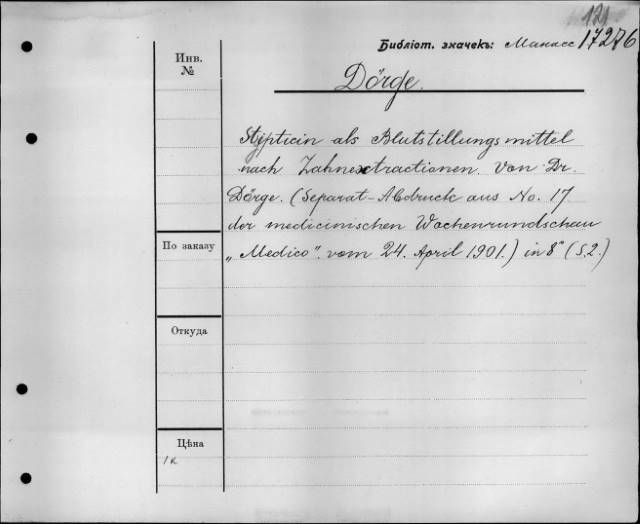 121
Библіот. значекъ: Манасс 17276
Инв.
№
Dörge.
Stypticin als Blutstillungsmittel
nach Zahnextractionen. Von Dr.
Dörge. (Separat-Abdruck aus No. 17
der medicinischen Wochenrundschau
„Medico". vom 24. April 1901.) in 8° (S.2.)
По заказу
Откуда
Цѣна
1 к